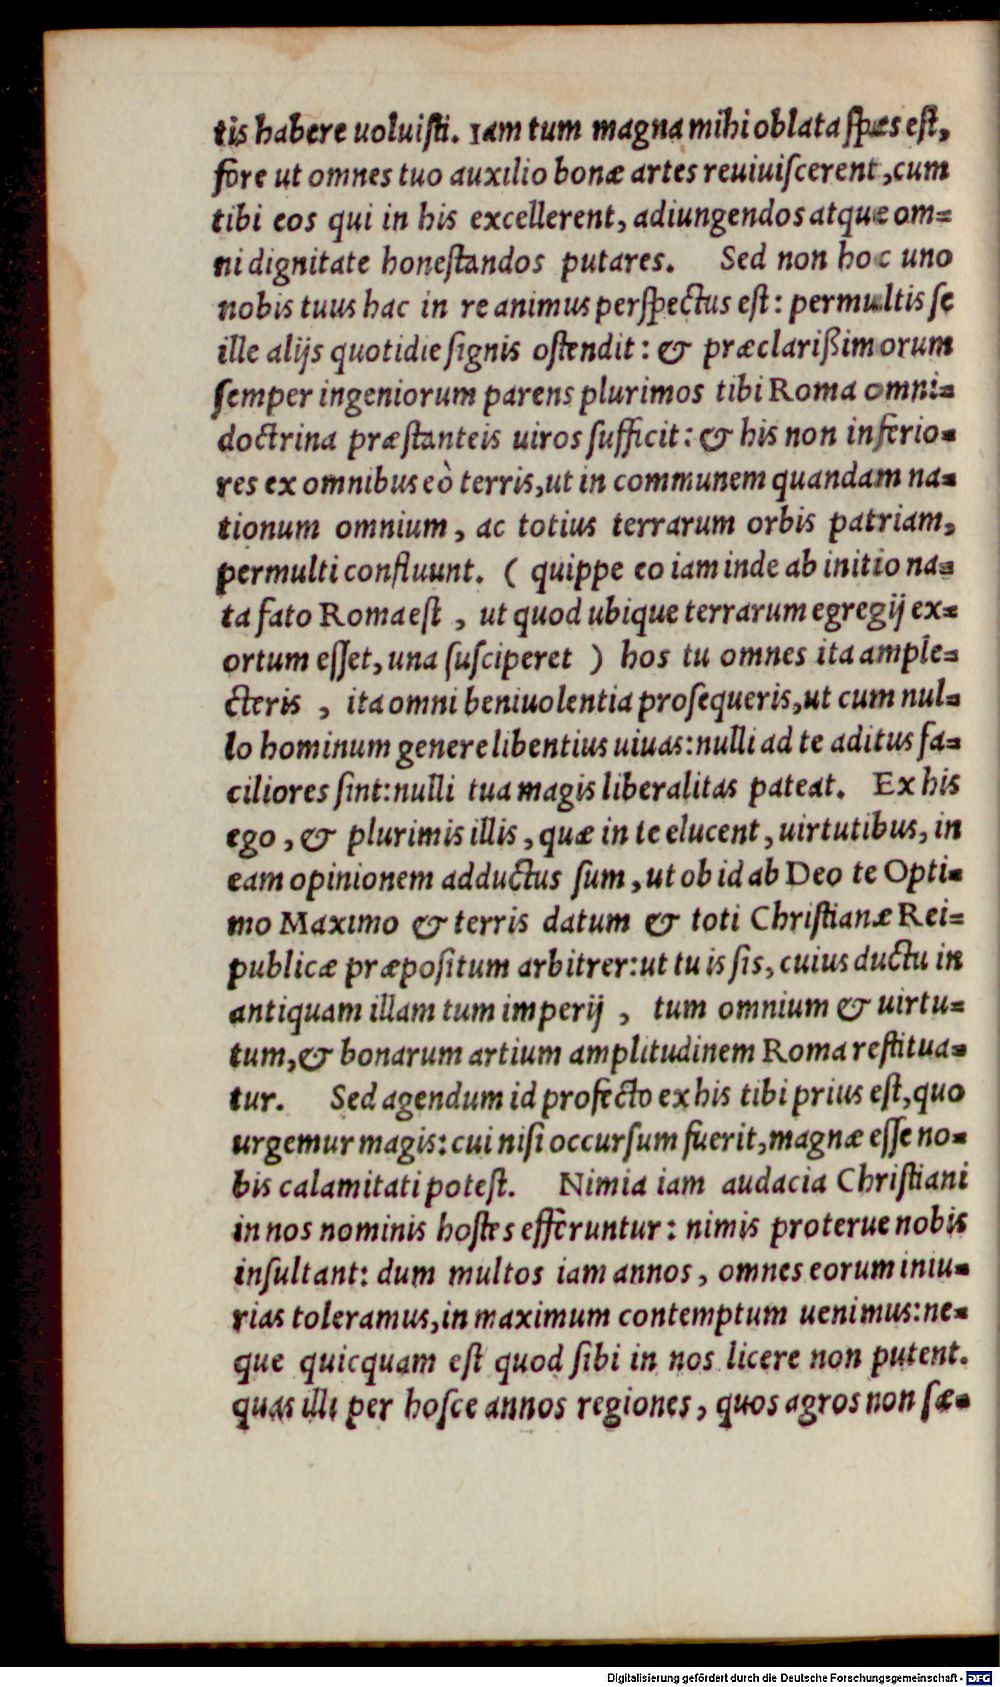 tis habere uoluisti. Iam tum magna mihi oblata spes est,
fore ut omnes tuo auxilio bonæ artes reuiuiscerent, cum
tibi eos qui in his excellerent, adiungendos atque om=
ni dignitate honestandos putares. Sed non hoc uno
nobis tuus hac in re animus perspectus est: permultis se
ille alijs quotidie signis ostendit: & præclarißimorum
semper ingeniorum parens plurimos tibi Roma omni=
doctrina præstanteis uiros sufficit: & his non inferio=
res ex omnibus eò terris, ut in communem quandam na=
tionum omnium, ac totius terrarum orbis patriam,
permulti confluunt. ( quippe eo iam inde ab initio na=
ta fato Roma est , ut quod ubique terrarum egregij ex=
ortum esset, una susciperet ) hos tu omnes ita ample=
cteris , ita omni beniuolentia prosequeris, ut cum nul=
lo hominum genere libentius uiuas: nulli ad te aditus fa=
ciliores sint: nulli tua magis liberalitas pateat. Ex his
ego , & plurimis illis , quæ in te elucent , uirtutibus, in
eam opinionem adductus sum , ut ob id ab Deo te Opti=
mo Maximo & terris datum & toti Christianæ Rei=
publicæ præpositum arbitrer: ut tu is sis, cuius ductu in
antiquam illam tum imperij , tum omnium & uirtu=
tum, & bonarum artium amplitudinem Roma restitua=
tur. Sed agendum id profecto ex his tibi prius est, quo
urgemur magis: cui nisi occursum fuerit, magnæ esse no=
bis calamitati potest. Nimia iam audacia Christiani
in nos nominis hostes efferuntur: nimis proterue nobis
insultant: dum multos iam annos, omnes eorum iniu=
rias toleramus, in maximum contemptum uenimus: ne=
que quicquam est quod sibi in nos licere non putent.
quas illi per hosce annos regiones, quos agros non sæ=
Digitalisierung gefördert durch die Deutsche Forschungsgemeinschaft - DFG